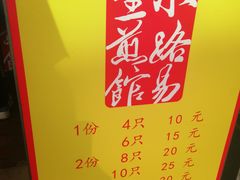 路易
生煎館
1份 4只 10元
6只 15元
2份 8只 20元
10只 25元